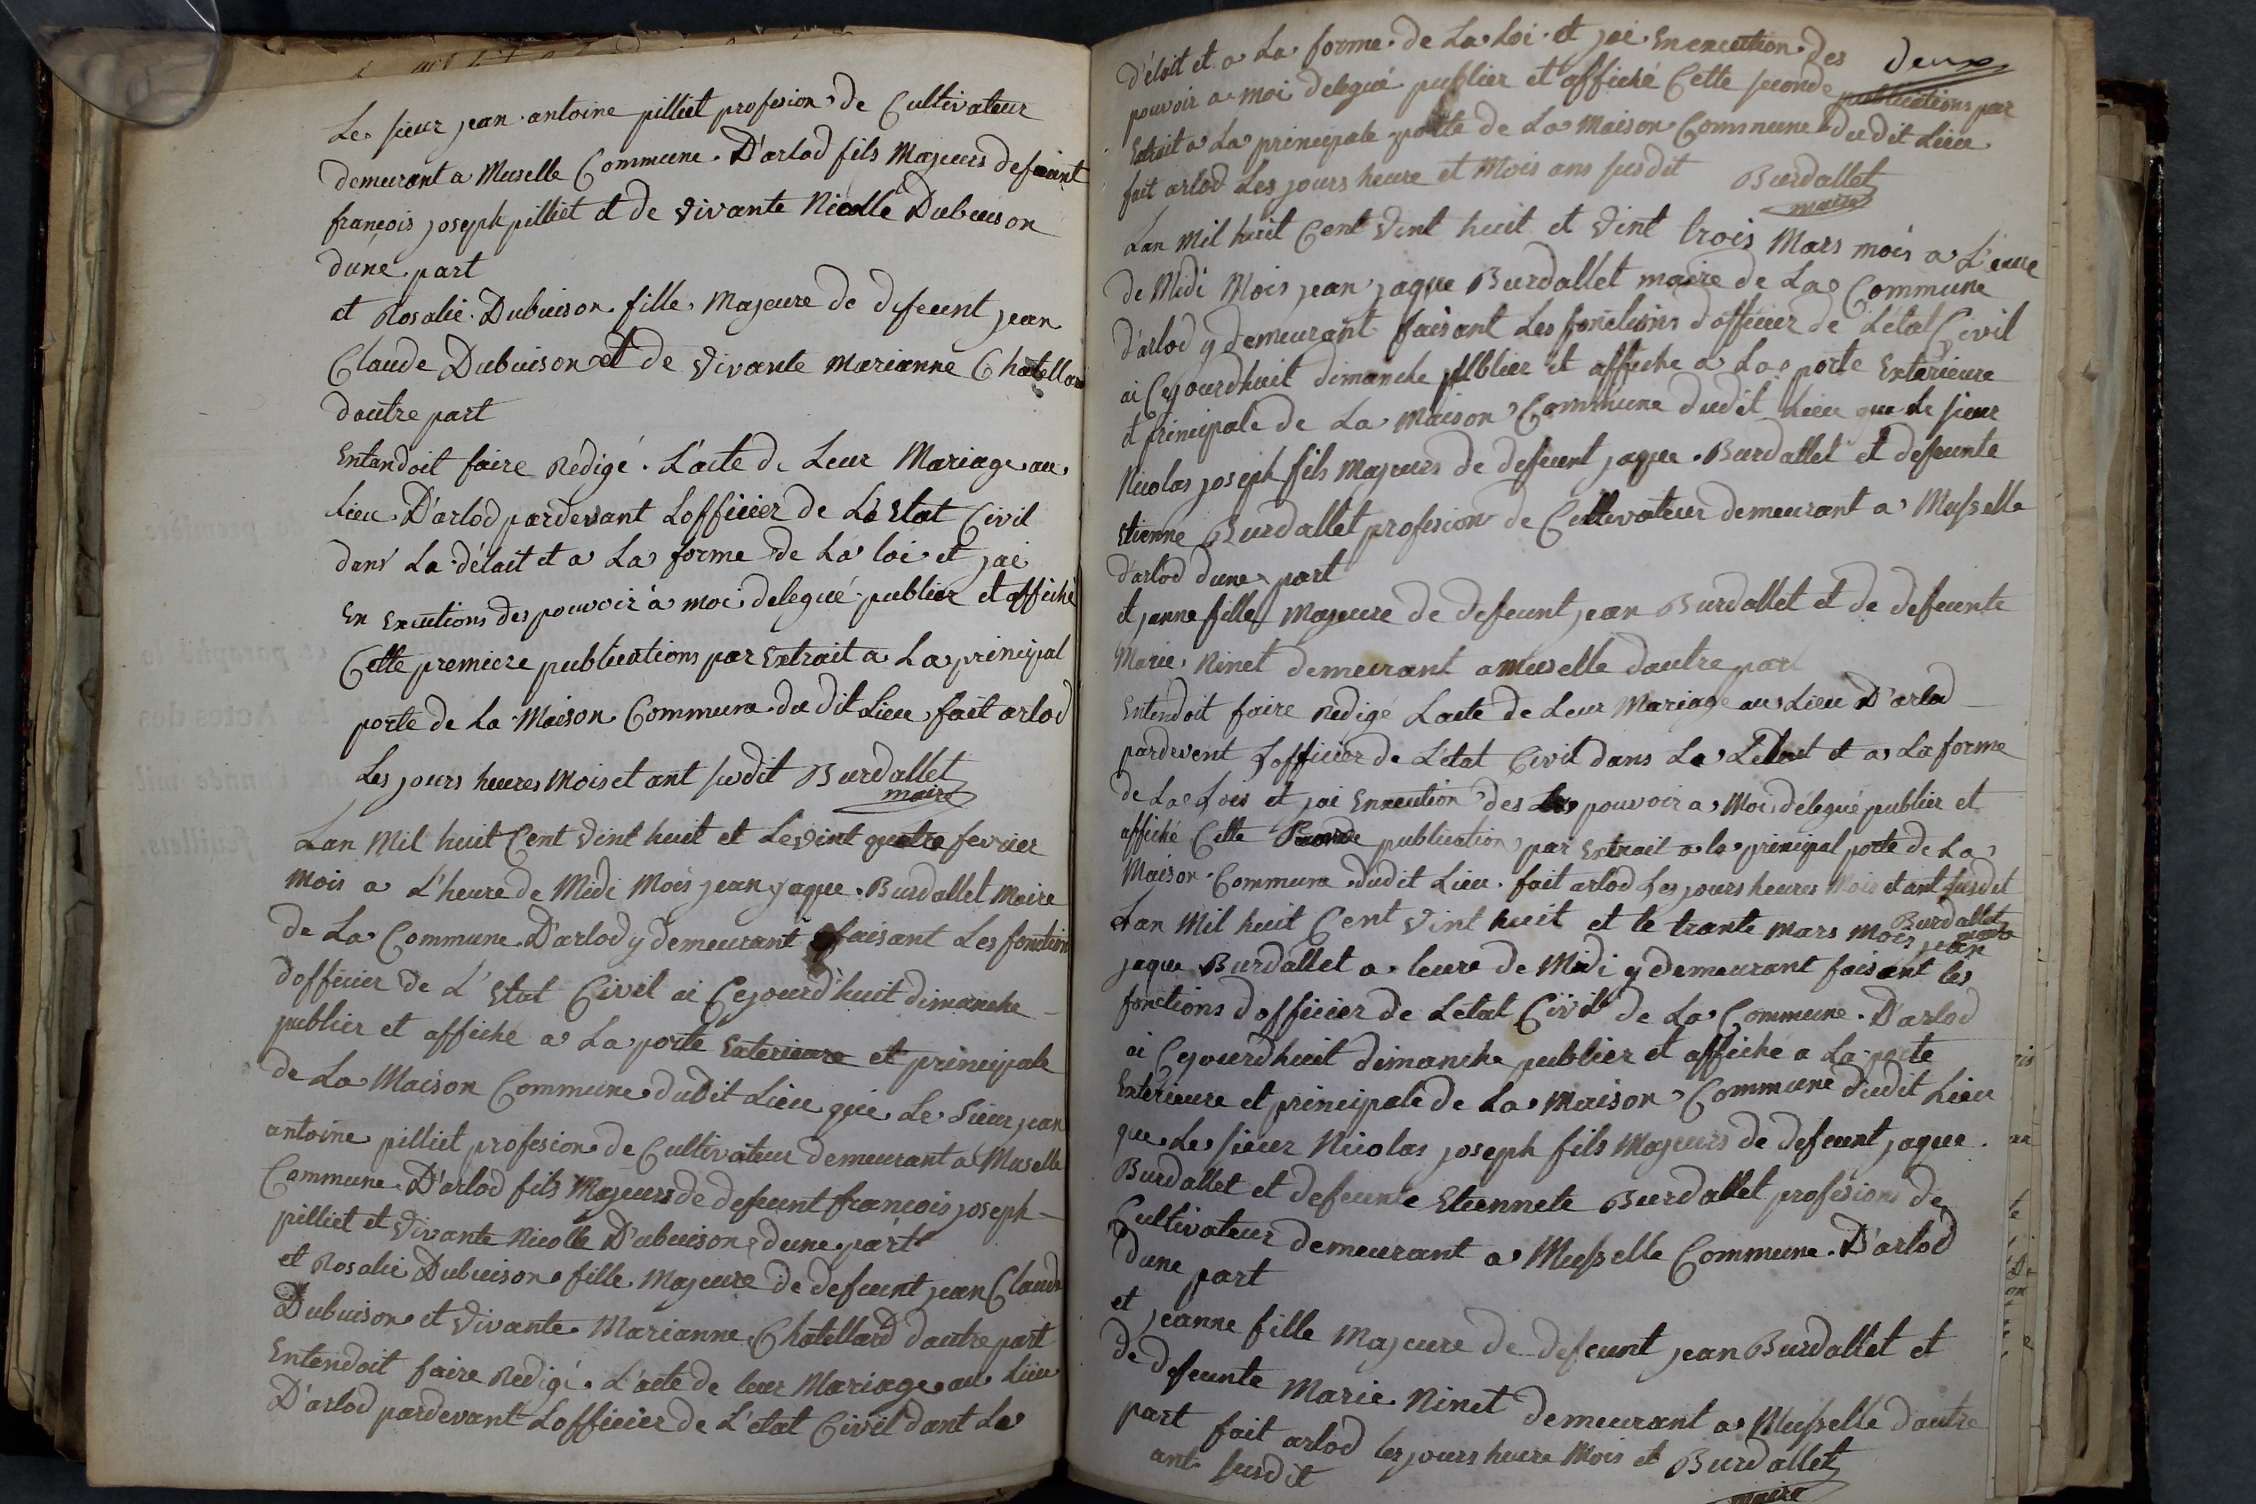 Le sieur jean antoine pilliet profesion de Cultivateur
demeurant a Muselle Commune D'arlod fils Majeurs defeunt
françois joseph pilliet et de vivante Nicolle Dubuison
dune part
et Rosalie Dubuison fille Majeure de defeunt jean
Claude Dubuison et de vivante Marianne Chatellard
dautre part
Entandoit faire Redigé L'acte de Leur Mariage au
Lieu D'arlod pardevant Lofficier de Lé Etat Civil
dans La délait et a La forme de La loi et jai
En Excutions des pouvoir à moi delegué publier et affiché
Cette premiere publications par Extrait a La principal
porte de La Maison Commune du dit Lieu fait arlod
Les jours heures Mois et ant susdit Burdallet
maire
Lan Mil huit Cent vint huit et Le vint quatre fevrier
mois a L'heure de Midi Mois jean jaque Burdallet Maire
de La Commune D'arlod y demeurant faisant Les fonction
dofficier de L'Etat Civil ai Cejourd'huit dimanche
publier et affiche a La porte Exterieure et principale
de La Maison Commune dudit Lieu que Le Sieur jean
antoine pilliet profesion de Cultivateur demeurant a Muselle
Commune D'arlod fils Majeurs de defeunt françois joseph
pilliet et vivante Nicolle Dubuison dune part
et Rosalie Dubuison fille Majeure de defeunt jean Claude
Dubuison et vivante Marianne Chatellard dautre part
Entendoit faire Redigé L'acte de leur Mariage au Lieu
D'arlod pardevant Lofficier de L'etat Civil dant La
deux
d'élait et a La forme de La Loi et jai En excution des
pouvoir a moi delegué publier et affiché Cette seconde publications par
Extrait a La principale porte de La Maison Commune dudit Lieu
fait arlod Les jours heure et Mois ans susdit Burdallet
maire
Lan Mil huit Cent vint huit et vint trois Mars mois a L'eure
de Midi Mois jean jaque Burdallet maire de La Commune
d'arlod y demeurant faisant Les fonctions dofficier de L'état Civil
ai Cejourdhuit dimanche publier et affiche a La porte Exterieure
et principale de La Maison Commune dudit Lieu que Le sieur
Nicolas joseph fils Majeurs de defeunt jaque Burdallet et defeunte
Etienne Burdallet profesion de Cultivateur demeurant a Musselle
d'arlod dune part
et janne fille Majeure de defeunt jean Burdallet et de defeunte
Marie Ninet demeurant a Muselle dautre part
Entendoit faire Redigé Lacte de Leur Mariage au Lieu D'arlod
pardevent Lofficier de L'état Civil dans La et a La forme
de La Lois et jai Enxcution des pouvoir a Moi délegué publier et
affiché Cette publication par Extrait a la principal porte de La
Maison Commune dudit Lieu fait arlod Les jours heures Mois et ant susdit
Burdallet
maire
Lan Mil huit Cent vint huit et le trante mars mois jean
jaque Burdallet a leure de Midi y demeurant faisant les
fonctions dofficier de Létat Civil de La Commune D'arlod
ai Cejourdhuit dimanche publier et affiché a La porte
Exterieure et principale de La Maison Commune dudit Lieu
que Le sieur Nicolas joseph fils Majeurs de defeunt jaque
Burdallet et defeunte Etiennete Burdallet profesions de
Cultivateur demeurant a Musselle Commune D'arlod
dune part
et
jeanne fille Majeure de defeunt jean Burdallet et
de defeunte Marie Ninet demeurant a Musselle dautre
part fait arlod les jours heure Mois et Burdallet
ant susdit
maire